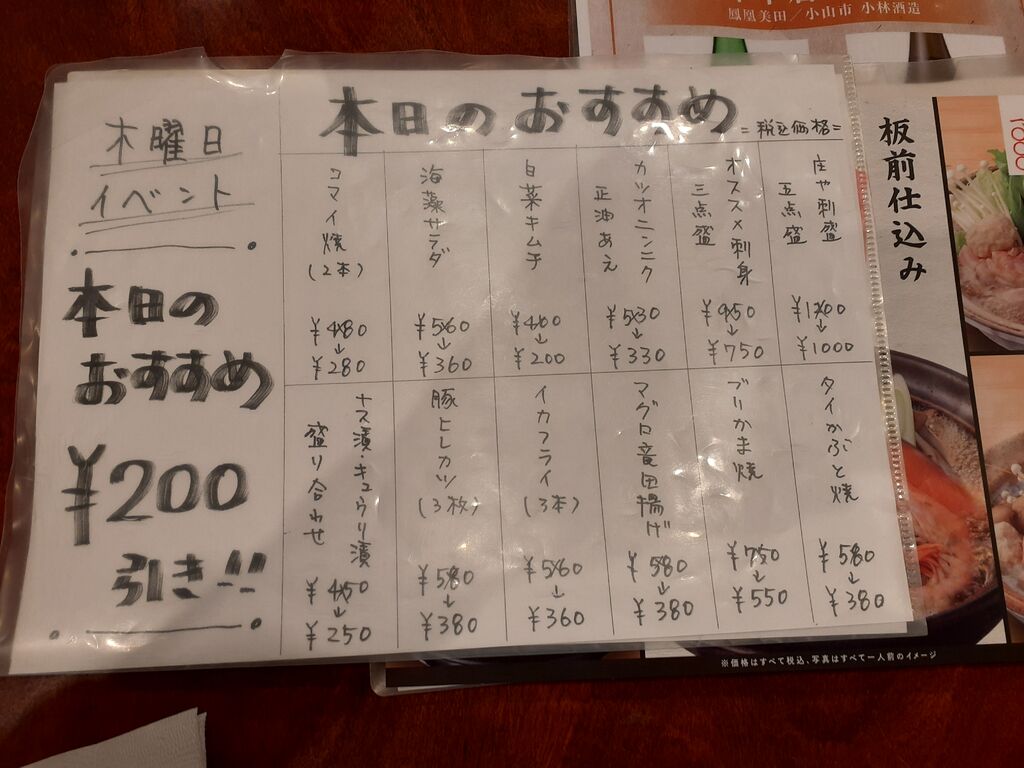 木曜日
イベント
本日の
おすすめ
¥200
引き!!
本日のおすすめ
=税込価格=
庄や刺盛
五点盛
¥1200
↓
¥1000
オススメ刺身
三点盛
¥950
↓
¥750
カツオニンニク
正油あえ
¥530
↓
¥330
白菜キムチ
¥400
↓
¥200
海藻サラダ
¥560
↓
¥360
コマイ焼
(2本)
¥480
↓
¥280
タイかぶと焼
¥580
↓
¥380
ブリかま焼
¥750
↓
¥550
マグロ竜田揚げ
¥580
↓
¥380
イカフライ
(3本)
¥560
↓
¥360
豚ヒレカツ
(3枚)
¥580
↓
¥380
ナス漬・キュウリ漬
盛り合わせ
¥450
↓
¥250
鳳凰美田/小山市 小林酒造
板前仕込み
※価格はすべて税込、写真はすべて一人前のイメージ